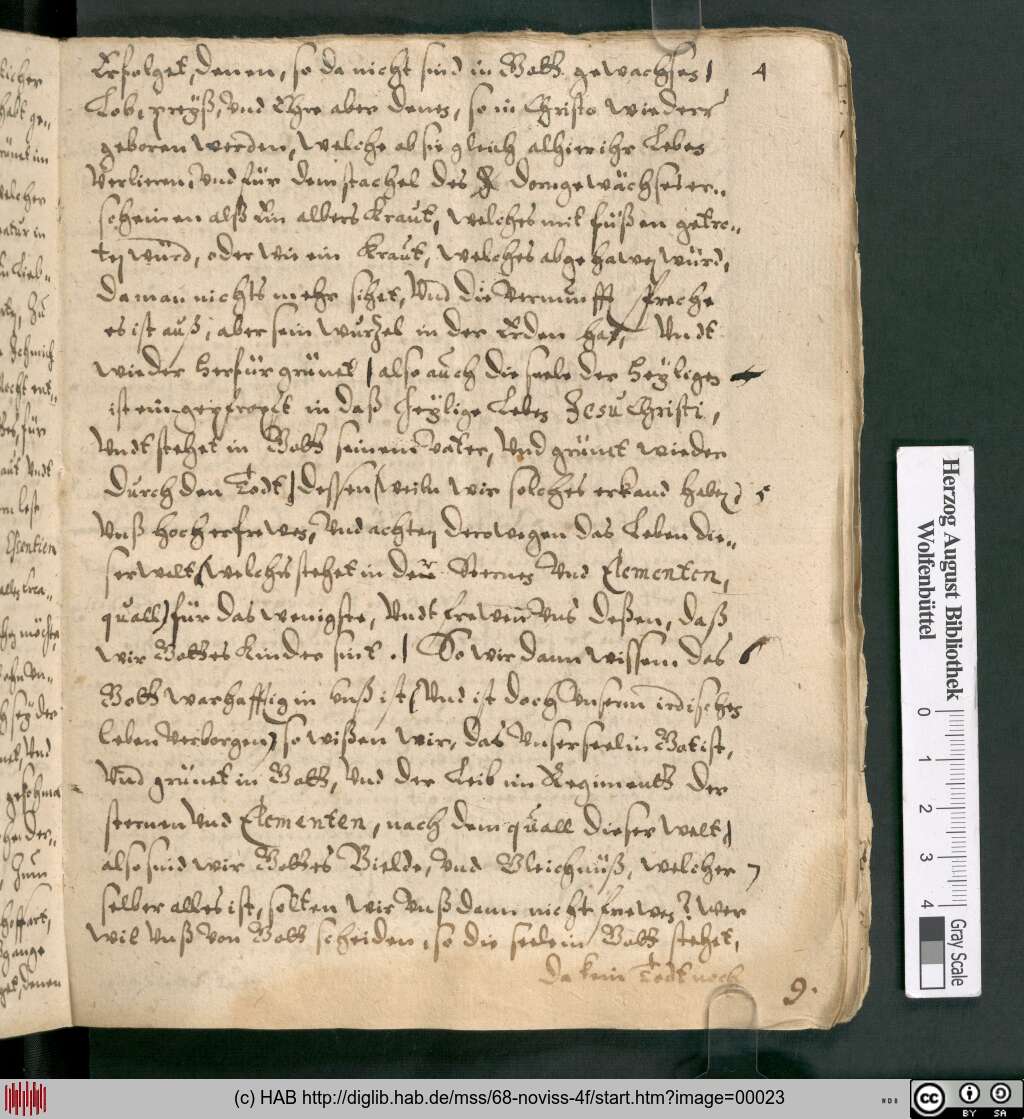 Erfolget, denen, so da nicht sind in Gott gewachsen / 4
Lob, preyß, vnd Ehre aber denen, so in Christo wieder
geboren werden, welche ob sie gleich alhier ihr Leben
Verlieren, Vnd für dem stachel des dorngewächses er„
scheinen alß Ein albers Kraut, welches mit füßen getre„
ten würd, oder wie ein Kraut, welches abgehawen würd,
da man nichts mehr sihet, Vnd die vernunfft spreche
es ist auß, aber sein wurzel in der Erden hat, Vndt
wieder herfür grünet / also auch die seele der Heyligen
ist ein gepfropft in daß heylige Leben Jesu Christi,
Vndt stehet in Gott seinem vater, Vnd grünet wieder
durch den Todt / dessen (weiln wir solches erkand haben) 5
Vnß hoch erfrewen, Vnd achten derowegen das Leben die„
ser welt (welches stehet in der Sternen Vnd Elementen,
quall) für das wenigste, Vndt frewen vns deßen, daß
wir Gottes kinder sint. / So wir dann wissen das 6
Gott warhafftig in vnß ist (Vnd ist doch vnserm irdischen
leben verborgen) so wißen wir, das vnser seel in Got ist,
Vnd grünet in Gott, Vnd der Leib im Regiment der
sternen Vnd Elementen, nach dem quall dieser welt /
also sind wir Gottes Bielde, Vnd Gleichnüß, welcher 7
selber alles ist, solten wir Vnß dann nicht frewen? wer
wil Vnß von Gott scheiden, so die seele in Gott stehet,
da kein Todt noch
9.
Herzog August Bibliothek
Wolfenbüttel
0 1 2 3 4
Gray Scale
(c) HAB http://diglib.hab.de/mss/68-noviss-4f/start.htm?image=00023
WDB
cc BY SA